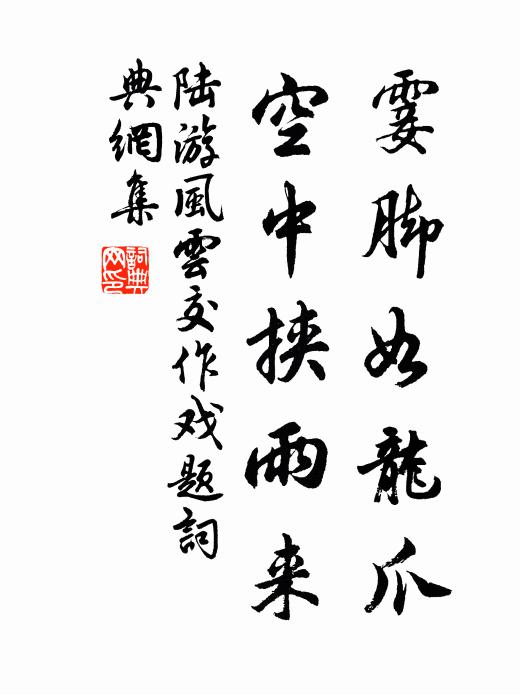 霎脚如龍爪
空中挾雨来
陸游風雲交作戏题詞
典網集
詞典
网印